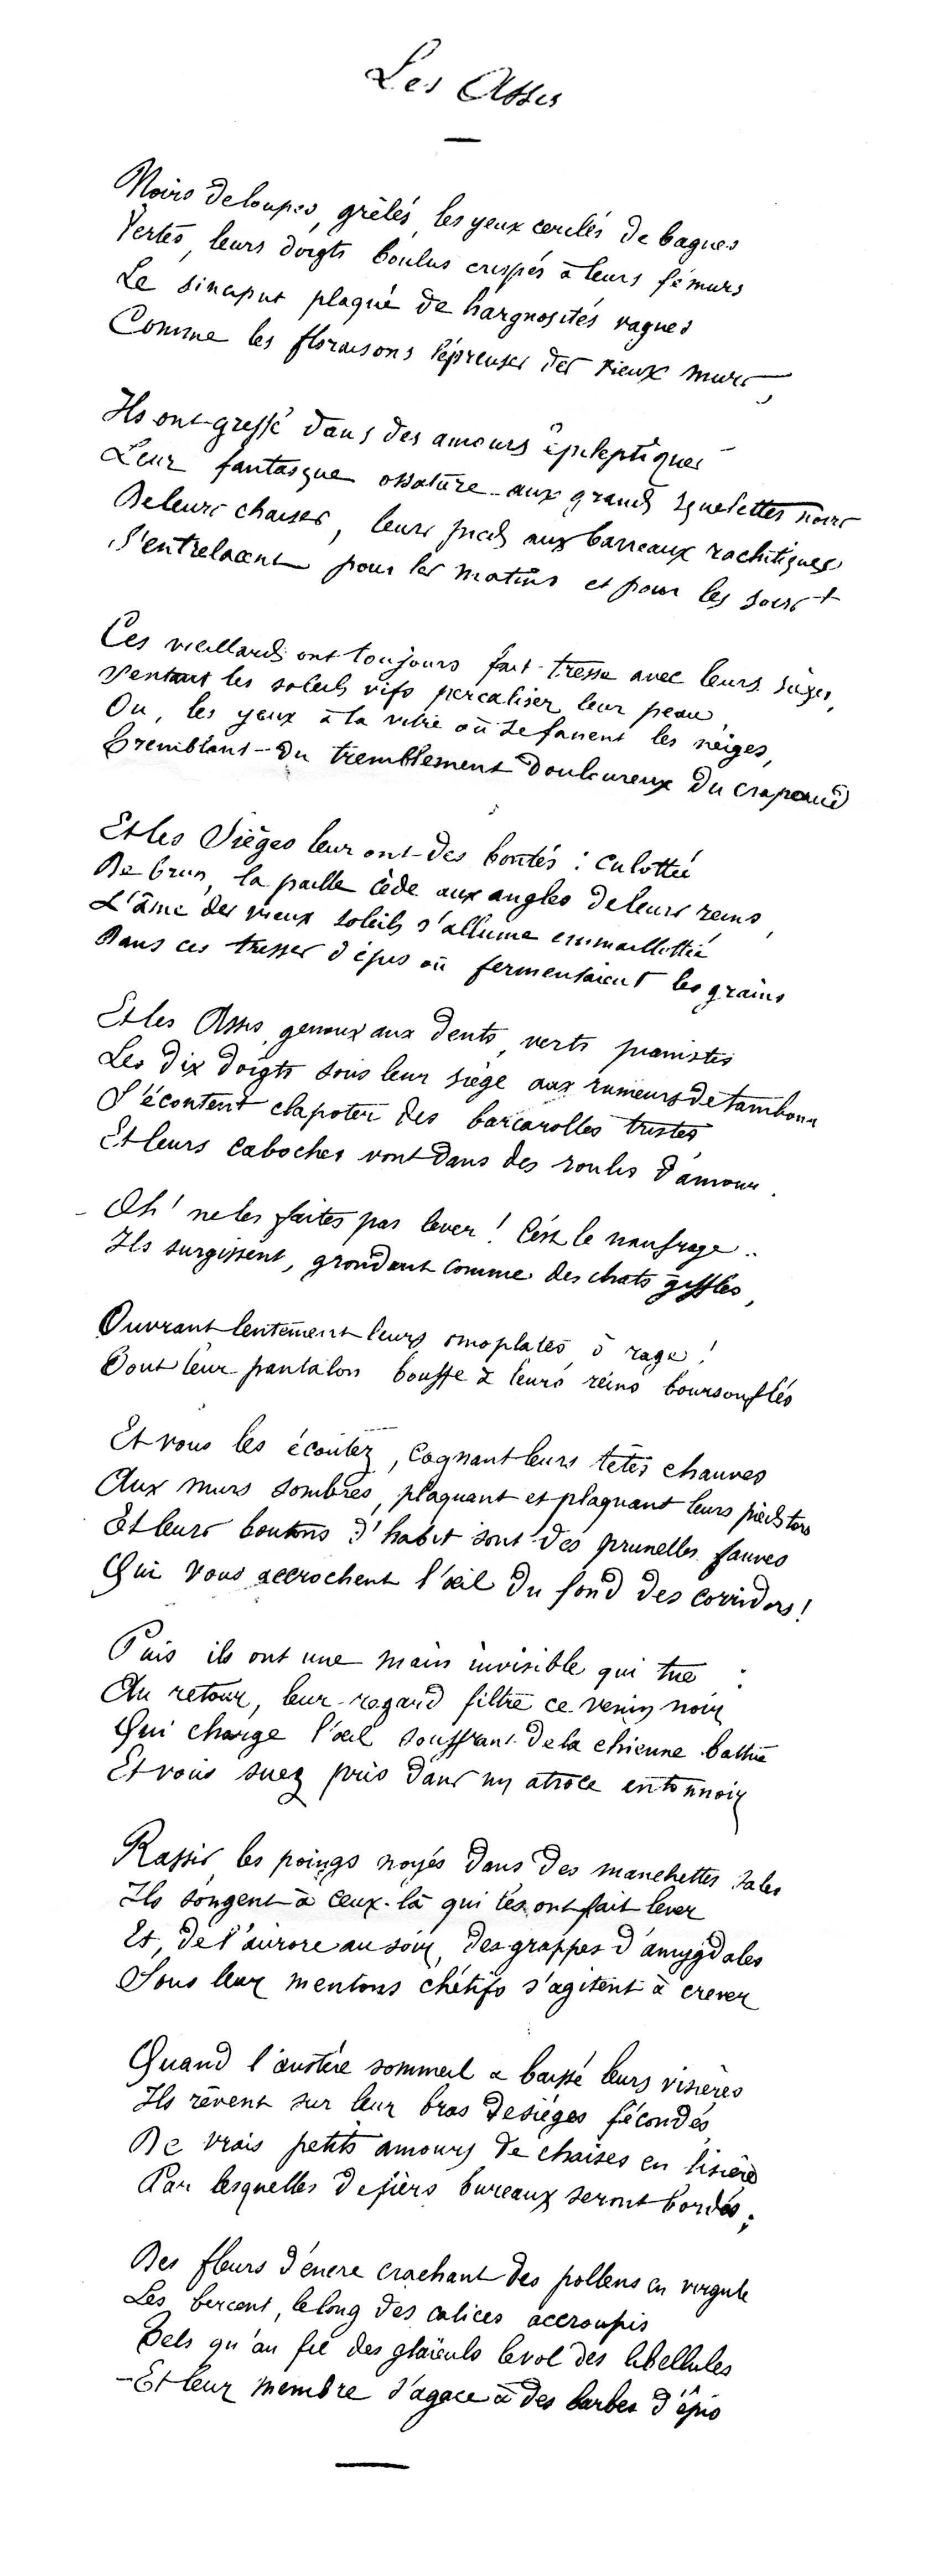 Les Assis
Noirs de loupes, grêlés, les yeux cerclés de bagues
Vertes, leurs doigts boulus crispés à leurs fémurs
Le sinciput plaqué de hargnosités vagues
Comme les floraisons lépreuses des vieux murs,
Ils ont greffé dans des amours épileptiques
Leur fantasque ossature aux grands squelettes noirs
De leurs chaises, leurs pieds aux barreaux rachitiques
S'entrelacent pour les matins et pour les soirs
Ces vieillards ont toujours fait tresse avec leurs sièges,
Sentant les soleils vifs percaliser leur peau,
Ou, les yeux à la vitre où se fanent les neiges,
Tremblant du tremblement douloureux du crapaud
Et les Sièges leur ont des bontés : culottée
De brun, la paille cède aux angles de leurs reins,
L'âme des vieux soleils s'allume emmaillottée
Dans ces tresses d'épis où fermentaient les grains
Et les Assis, genoux aux dents, verts pianistes
Les dix doigts sous leur siège aux rumeurs de tambour
S'écoutent clapoter des barcarolles tristes
Et leurs caboches vont dans des roulis d'amour.
- Oh ! ne les faites pas lever ! C'est le naufrage..
Ils surgissent, grondant comme des chats giffles,
Ouvrant lentement leurs omoplates ô rage !
Tout leur pantalon bouffe à leurs reins boursouflés
Et vous les écoutez, cognant leurs têtes chauves
Aux murs sombres, plaquant et plaquant leurs pieds tors
Et leurs boutons d'habit sont des prunelles fauves
Qui vous accrochent l'œil du fond des corridors !
Puis ils ont une main invisible qui tue :
Au retour, leur regard filtre ce venin noir
Qui charge l'œil souffrant de la chienne battue
Et vous suez pris dans un atroce entonnoir
Rassis, les poings noyés dans des manchettes sales
Ils songent à ceux-là qui les ont fait lever
Et, de l'aurore au soir, des grappes d'amygdales
Sous leur mentons chétifs s'agitent à crever
Quand l'austère sommeil a baissé leurs visières
Ils rêvent sur leur bras de sièges fécondés,
De vrais petits amours de chaises en lisière
Par lesquelles de fiers bureaux seront bordés ;
Des fleurs d'encre crachant des pollens en virgule
Les bercent, le long des calices accroupis
Tels qu'au fil des glaïeuls le vol des libellules
- Et leur membre s'agace à des barbes d'épis